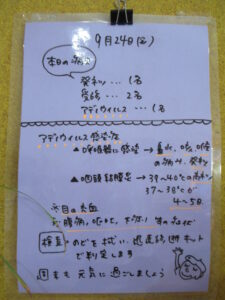 9月24日(金)
本日の病欠
発熱… 1名
アデノウイルス… 1名
アデノウイルス感染症
▲呼吸器に感染→鼻水、咳、咽
の痛み、発熱
▲咽頭結膜炎→39〜40℃の高熱
37〜38℃が
4〜5日
目の充血
腹痛、嘔吐、下痢
検査・のどをぬぐい、迅速診断キット
で判定します
も 元気に過ごしましょう